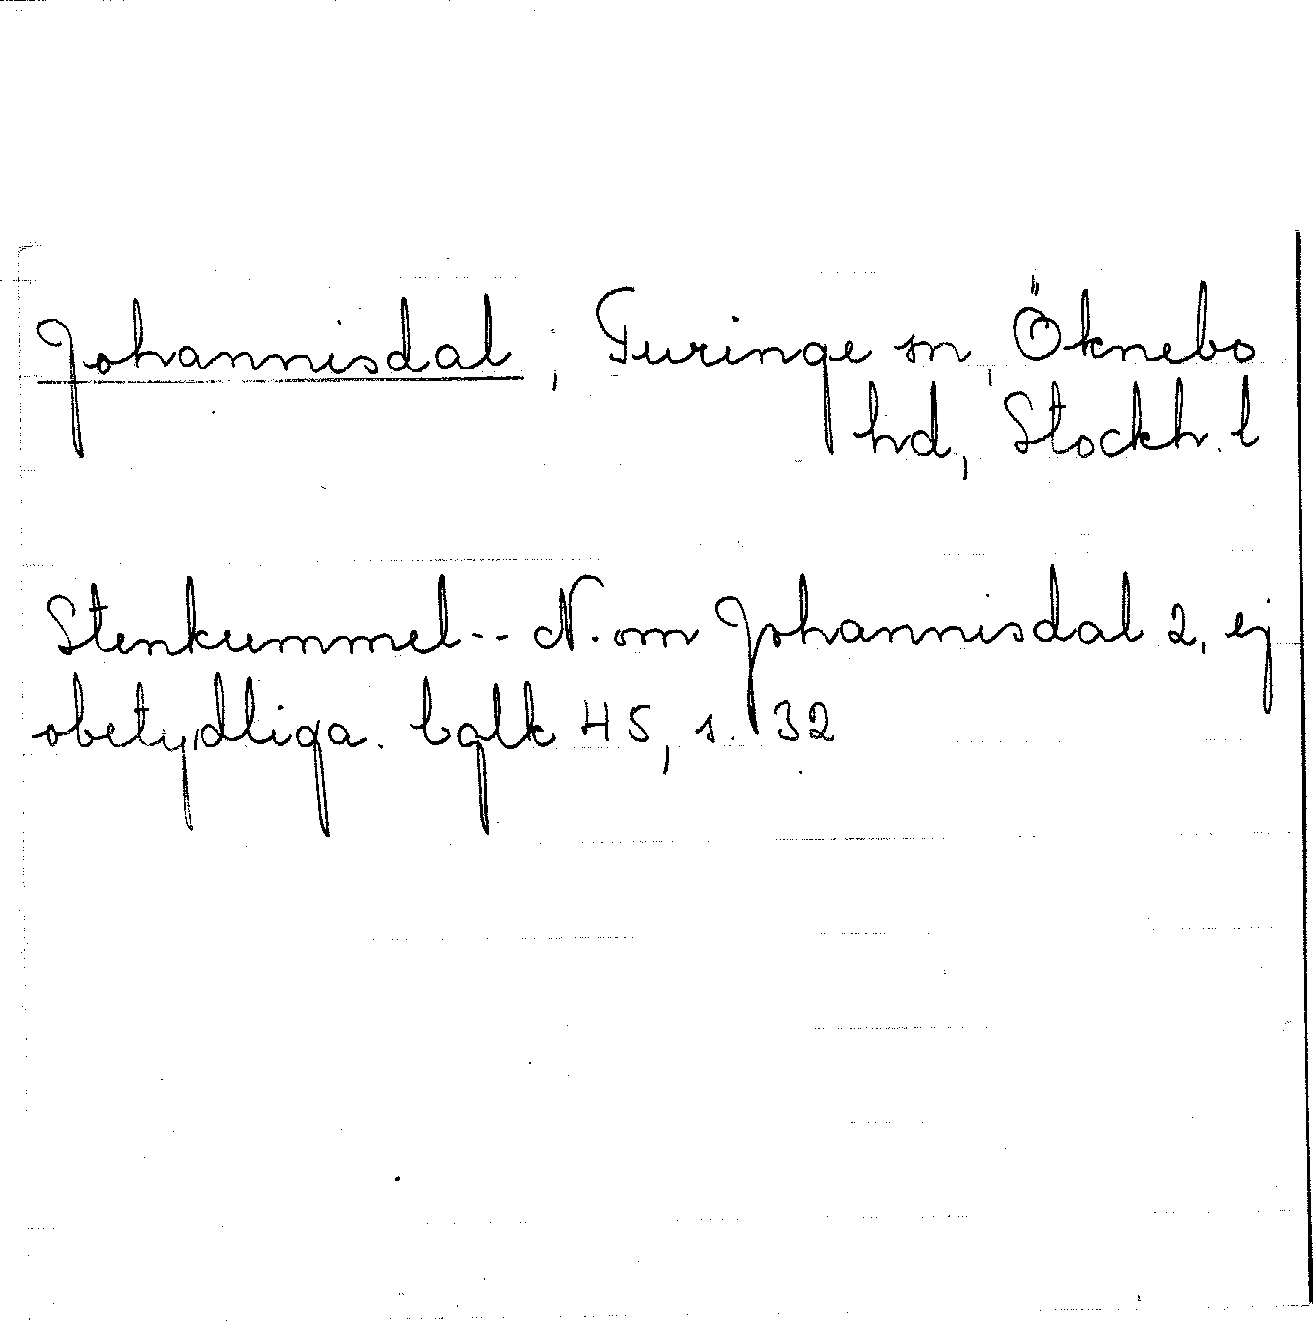 Johannisdal, Turinge sn, Öknebo
hd, Stockh. l
Stenkummel-- N. om Johannisdal 2, ej
obetydliga. bglk 45, s. 32